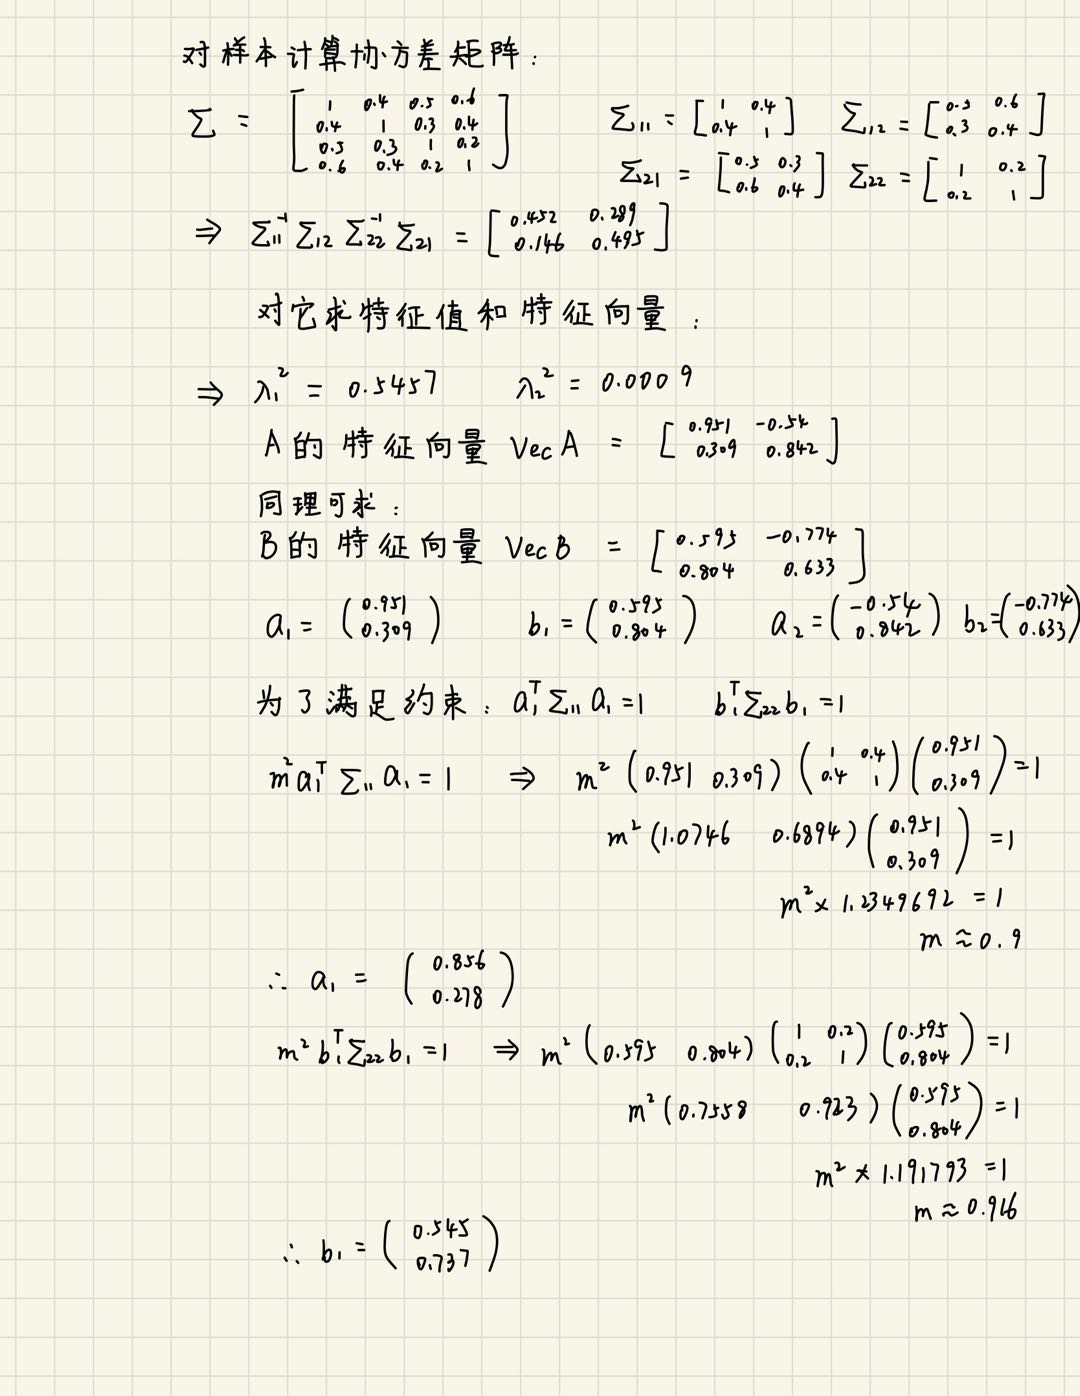 对样本计算协方差矩阵：
Σ = [1 0.4 0.5 0.6; 0.4 1 0.3 0.4; 0.5 0.3 1 0.2; 0.6 0.4 0.2 1] Σ₁₁ = [1 0.4; 0.4 1] Σ₁₂ = [0.5 0.6; 0.3 0.4]
Σ₂₁ = [0.5 0.3; 0.6 0.4] Σ₂₂ = [1 0.2; 0.2 1]
⇒ Σ₁₁⁻¹ Σ₁₂ Σ₂₂⁻¹ Σ₂₁ = [0.452 0.289; 0.146 0.495]
对它求特征值和特征向量：
⇒ λ₁² = 0.5457 λ₂² = 0.0009
A的特征向量 Vec A = [0.951 -0.54; 0.309 0.842]
同理可求：
B的特征向量 Vec B = [0.595 -0.774; 0.804 0.633]
a₁ = (0.951; 0.309) b₁ = (0.595; 0.804) a₂ = (-0.54; 0.842) b₂ = (-0.774; 0.633)
为了满足约束：a₁ᵀ Σ₁₁ a₁ = 1 b₁ᵀ Σ₂₂ b₁ = 1
m² a₁ᵀ Σ₁₁ a₁ = 1 ⇒ m² (0.951 0.309) (1 0.4; 0.4 1) (0.951; 0.309) = 1
m² (1.0746 0.6894) (0.951; 0.309) = 1
m² × 1.2349692 = 1
m ≈ 0.9
∴ a₁ = (0.856; 0.278)
m² b₁ᵀ Σ₂₂ b₁ = 1 ⇒ m² (0.595 0.804) (1 0.2; 0.2 1) (0.595; 0.804) = 1
m² (0.7558 0.923) (0.595; 0.804) = 1
m² × 1.191793 = 1
m ≈ 0.916
∴ b₁ = (0.545; 0.737)